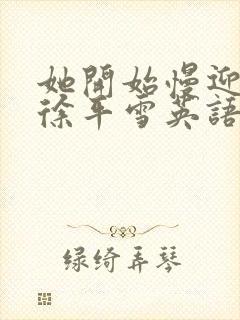 她開始慢迎
徐平雪英語
绿绮弄琴